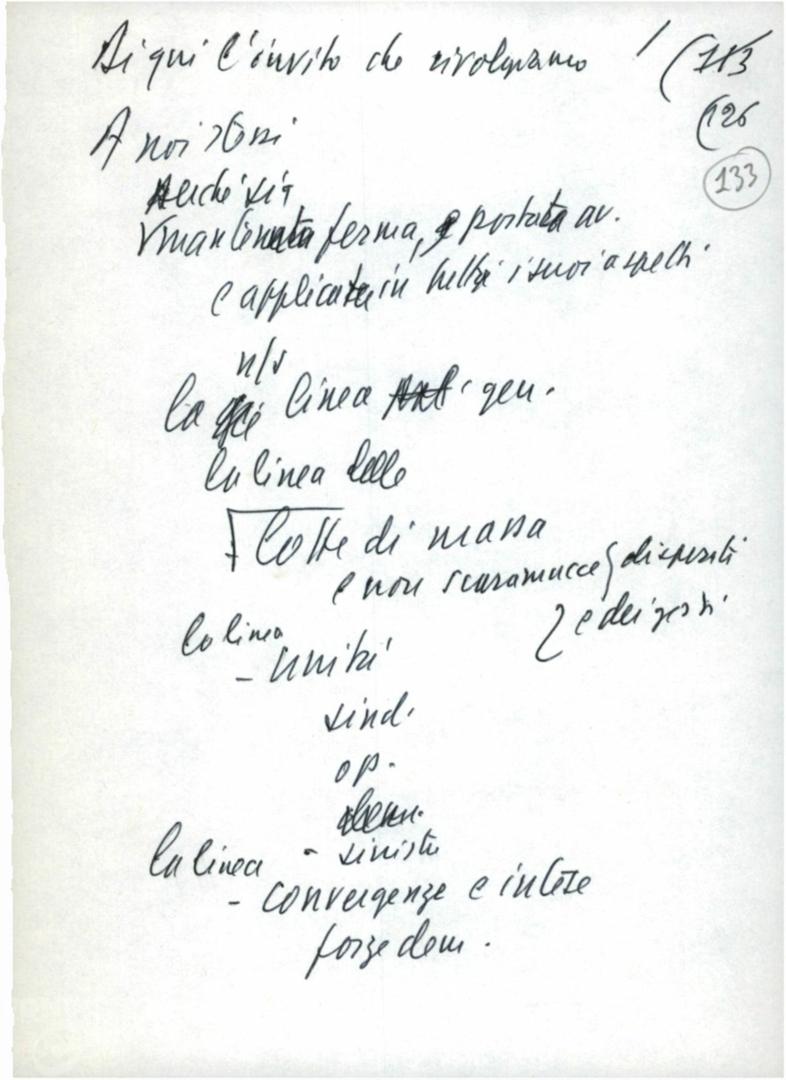 Di qui l'invito che rivolgiamo
(113
(126
133
A noi stessi
perché sia
mantenuta ferma, e portata av.
e applicata in tutti i suoi aspetti
n/s
la linea gen.
la linea delle
lotte di massa
e non scaramucce { dispersiti
la linea } e dei gesti
- unità
sind.
op.
dem.
la linea - sinistre
- convergenze e intese
forze dem.